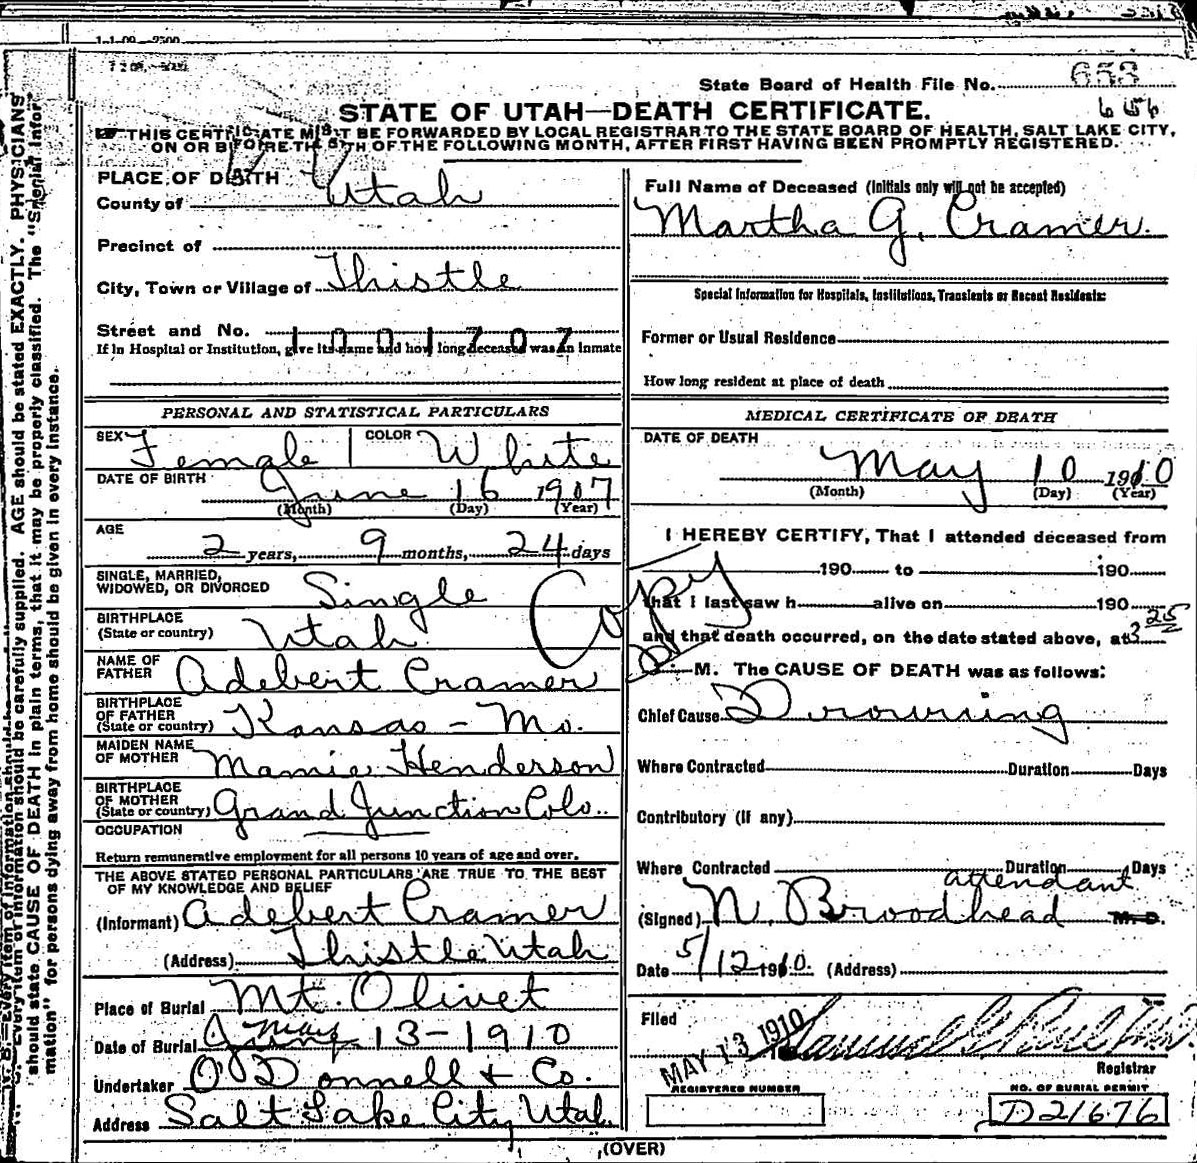 1-1-09—2500
State Board of Health File No. 653
STATE OF UTAH—DEATH CERTIFICATE.
656
THIS CERTIFICATE MUST BE FORWARDED BY LOCAL REGISTRAR TO THE STATE BOARD OF HEALTH, SALT LAKE CITY,
ON OR BEFORE THE 5TH OF THE FOLLOWING MONTH, AFTER FIRST HAVING BEEN PROMPTLY REGISTERED.
PLACE OF DEATH
County of Utah
Precinct of
City, Town or Village of Thistle
Street and No.
1001707
If in Hospital or Institution, give its name and how long deceased was an inmate
PERSONAL AND STATISTICAL PARTICULARS
SEX Female COLOR White
DATE OF BIRTH June 16 1907
(Month) (Day) (Year)
AGE
2 years, 9 months, 24 days
SINGLE, MARRIED,
WIDOWED, OR DIVORCED Single
BIRTHPLACE
(State or country) Utah
NAME OF
FATHER Adebert Cramer
BIRTHPLACE
OF FATHER
(State or country) Kansas - Mo.
MAIDEN NAME
OF MOTHER Mamie Henderson
BIRTHPLACE
OF MOTHER
(State or country) Grand Junction Colo.
OCCUPATION
Return remunerative employment for all persons 10 years of age and over.
THE ABOVE STATED PERSONAL PARTICULARS ARE TRUE TO THE BEST
OF MY KNOWLEDGE AND BELIEF
(Informant) Adebert Cramer
(Address) Thistle Utah
Place of Burial Mt. Olivet
Date of Burial June May 13-1910
Undertaker O'Donnell & Co.
Address Salt Lake City Utah
Full Name of Deceased (Initials only will not be accepted)
Martha G. Cramer.
Special Information for Hospitals, Institutions, Transients or Recent Residents:
Former or Usual Residence
How long resident at place of death
MEDICAL CERTIFICATE OF DEATH
DATE OF DEATH
May 10 1910
(Month) (Day) (Year)
I HEREBY CERTIFY, That I attended deceased from
190 to 190
that I last saw h alive on 190
and that death occurred, on the date stated above, at 3 25
P. M. The CAUSE OF DEATH was as follows:
Copy
Chief Cause Drowning
Where Contracted Duration Days
Contributory (if any)
Where Contracted Duration Days
attendant
(Signed) N. Broodhead M. D.
Date 5/12 1910. (Address)
Filed
MAY 13 1910
Samuel G. Paul
Registrar
REGISTERED NUMBER
NO. OF BURIAL PERMIT
D21676
(OVER)
should be carefully supplied. AGE should be stated EXACTLY. PHYSICIANS
should state CAUSE OF DEATH in plain terms, that it may be properly classified. The "Special Infor-
mation" for persons dying away from home should be given in every instance.